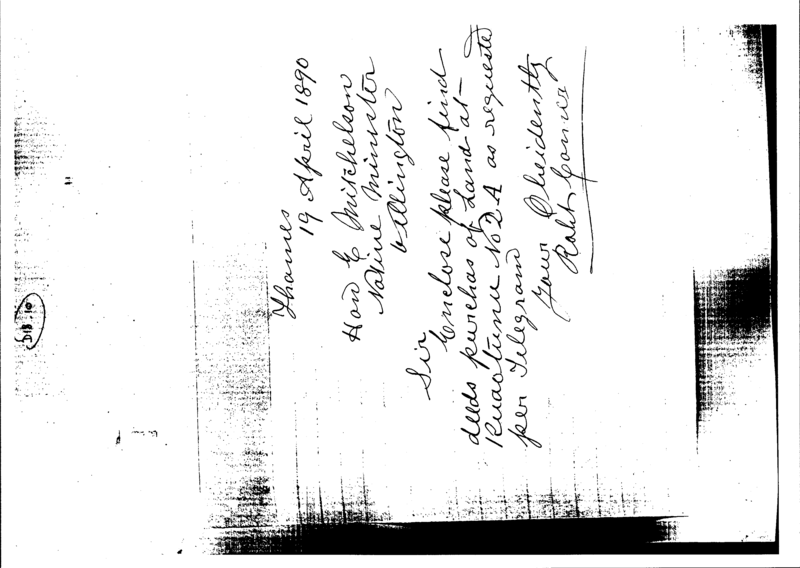 D13.10
Thames
19 April 1890
Hon E Mitchelson
Native Minister
Wellington
Sir
Enclose please find
deeds purchas of Land at
Kuaotunu No 2A as requested
per Telegram
Your Obeidently
Robt